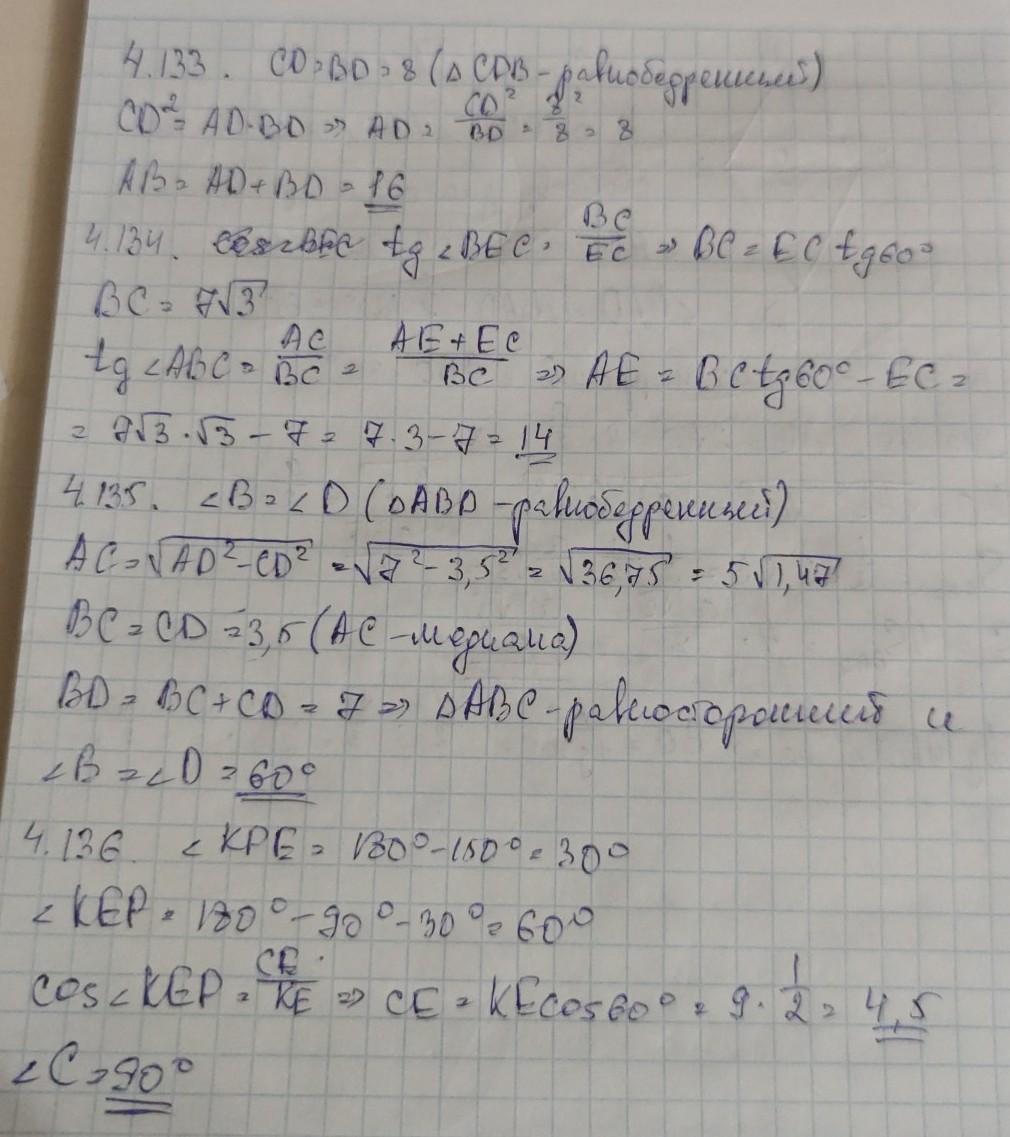 4.133. CD=BD=8 (△CDB-равнобедренный)
CD²=AD·BD ⇒ AD = CD²/BD = 8²/8 = 8
AB=AD+BD=16
4.134. tg∠BEC = BC/EC ⇒ BC=EC tg60°
BC=7√3
tg∠ABC = AC/BC = (AE+EC)/BC ⇒ AE = BCtg60°-EC=
= 7√3·√3-7=7·3-7=14
4.135. ∠B=∠D (△ABD-равнобедренный)
AC=√(AD²-CD²) =√(7²-3,5²) = √36,75 = 5√1,47
BC=CD=3,5 (AC-медиана)
BD=BC+CD=7 ⇒ △ABC-равносторонний и
∠B=∠D=60°
4.136. ∠KPE=180°-150°=30°
∠KEP=180°-90°-30°=60°
cos∠KEP = CE/KE ⇒ CE=KEcos60° = 9·1/2 = 4,5
∠C=90°